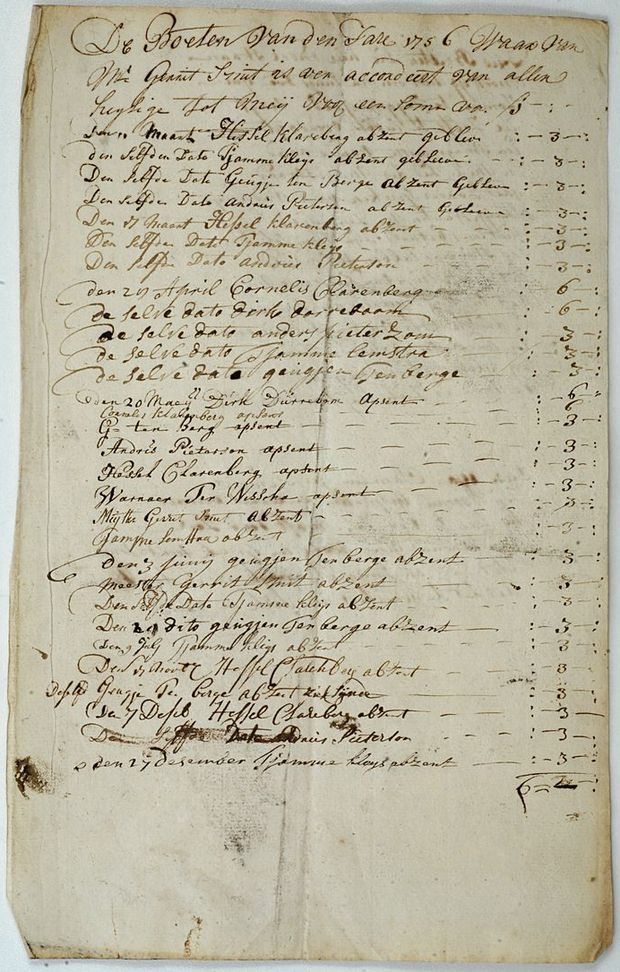 De Boeten Van den Jare 1756 Waar Van
Mr Gerrit Smit is ven accordeert van allen
heylige tot Meij voor een soma van f3 - :
Den Maart Hessel Klarenberg abzent geblev : - 3 - :
den Selfden Dato Tjamme Kleijs abzent gebleve - : - 3 - :
Den Selfde Date Geugje ten Berge abzent Gebleve : - 3 - :
Den Selfden Dato Andries Pieterson abzent Gebleve : - 3 - :
Den 17 Maart Hessel Klarenberg abzent - : - 3 - :
Den Selfden Dato Tjamme Kleijs - - - : - 3 - :
Den Selfden Dato Andries Pieterson - - : - 3 - :
den 29 April Cornelis Clarenberg - - : - 6 - :
de selve dato dirk dorreboom - - : - 6 - :
de selve dato anders pieterzom - - : 3 - :
de selve dato Tjamme lemstra - - : 3 - :
de selve dato geugjen Tenberge - - : - 3 - :
den 20 Maeij Dirk Durreboom Apsent - - : - 6 - :
Cornelis Klarenberg apsent 6
G= ten berg apsent - - - : - 3 - :
Andris Pieterson apsent - - - : - 3 - :
Hessel Clarenberg apsent - - - : - 3 - :
Warnaer Ter Wisscha apsent - - - : - 3 - :
Gerrit Smit abzent - - - : - 3 - :
Tjamme abzent - - - : - 3 - :
den 3 Junij geugjen Tenberge abzent - - : 3 - :
Meester Gerrit Smit abzent - - : 3 - :
Den Selfde Dato Tjamme Kleijs abzent - - : - 3 - :
Den 29 dito geugjen Tenberge abzent - - : - 3 - :
Den 9 July Tjamme Kleijs abzent - - : - 3 - :
Den 17 Hessel abzent - - : - 3 - :
Deselfd Geugje Ten berge abzent - - : - 3 - :
Den 7 Deseb Hessel Clareberg abzent - - : - 3 - :
Den Selfde Dato Andries Pieterson - - : - 3 - :
den 27 desember Tjamme Kleijs abzent - - : - 3 - :
6 -